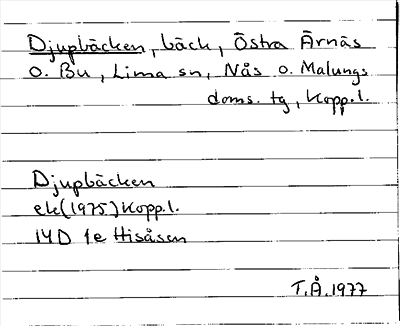 Djupbäcken, bäck, Östra Ärnäs
o. Bu, Lima sn, Nås o. Malungs
doms. tg, Kopp.l.
Djupbäcken
ek(1975) Kopp.l.
14D 1e Hisåsen
T.Å.1977